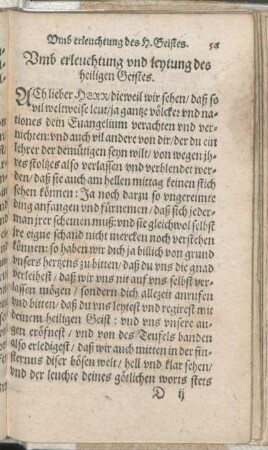 Vmb erleuchtung des H. Geistes. 50
Vmb erleuchtung vnd leytung des
heiligen Geistes.
ACh lieber HERR/dieweil wir sehen/daß so
vil weltweise leut/ja gantze völcker vnd na-
tiones dein Euangelium verachten vnd ver-
nichten: vnd auch vil andere von dir/der du ein
lehrer der demütigen seyn wilt/ von wegen jh-
res stoltzes also verlassen vnd verblendet wer-
den/ daß sie auch am hellen mittag keinen stich
sehen können: Ja noch darzu so vngereimte
ding anfangen vnd fürnemen/ daß sich jeder-
man jrer schemen muß: vnd sie gleichwol selbst
jre eigne schand nicht mercken noch verstehen
können: so haben wir dich ja billich von grund
vnsers hertzens zu bitten/ daß du vns die gnad
verleihest/ daß wir vns nit auf vns selbst ver-
lassen mögen/ sondern dich allezeit anrufen
vnd bitten/ daß du vns leytest vnd regirest mit
deinem heiligen Geist: vnd vns vnsere au-
gen eröfnest/ vnd von des Teufels banden
also erledigest/ daß wir auch mitten in der fin-
sternus diser bösen welt/ hell vnd klar sehen/
vnd der leuchte deines götlichen worts stets
D ij